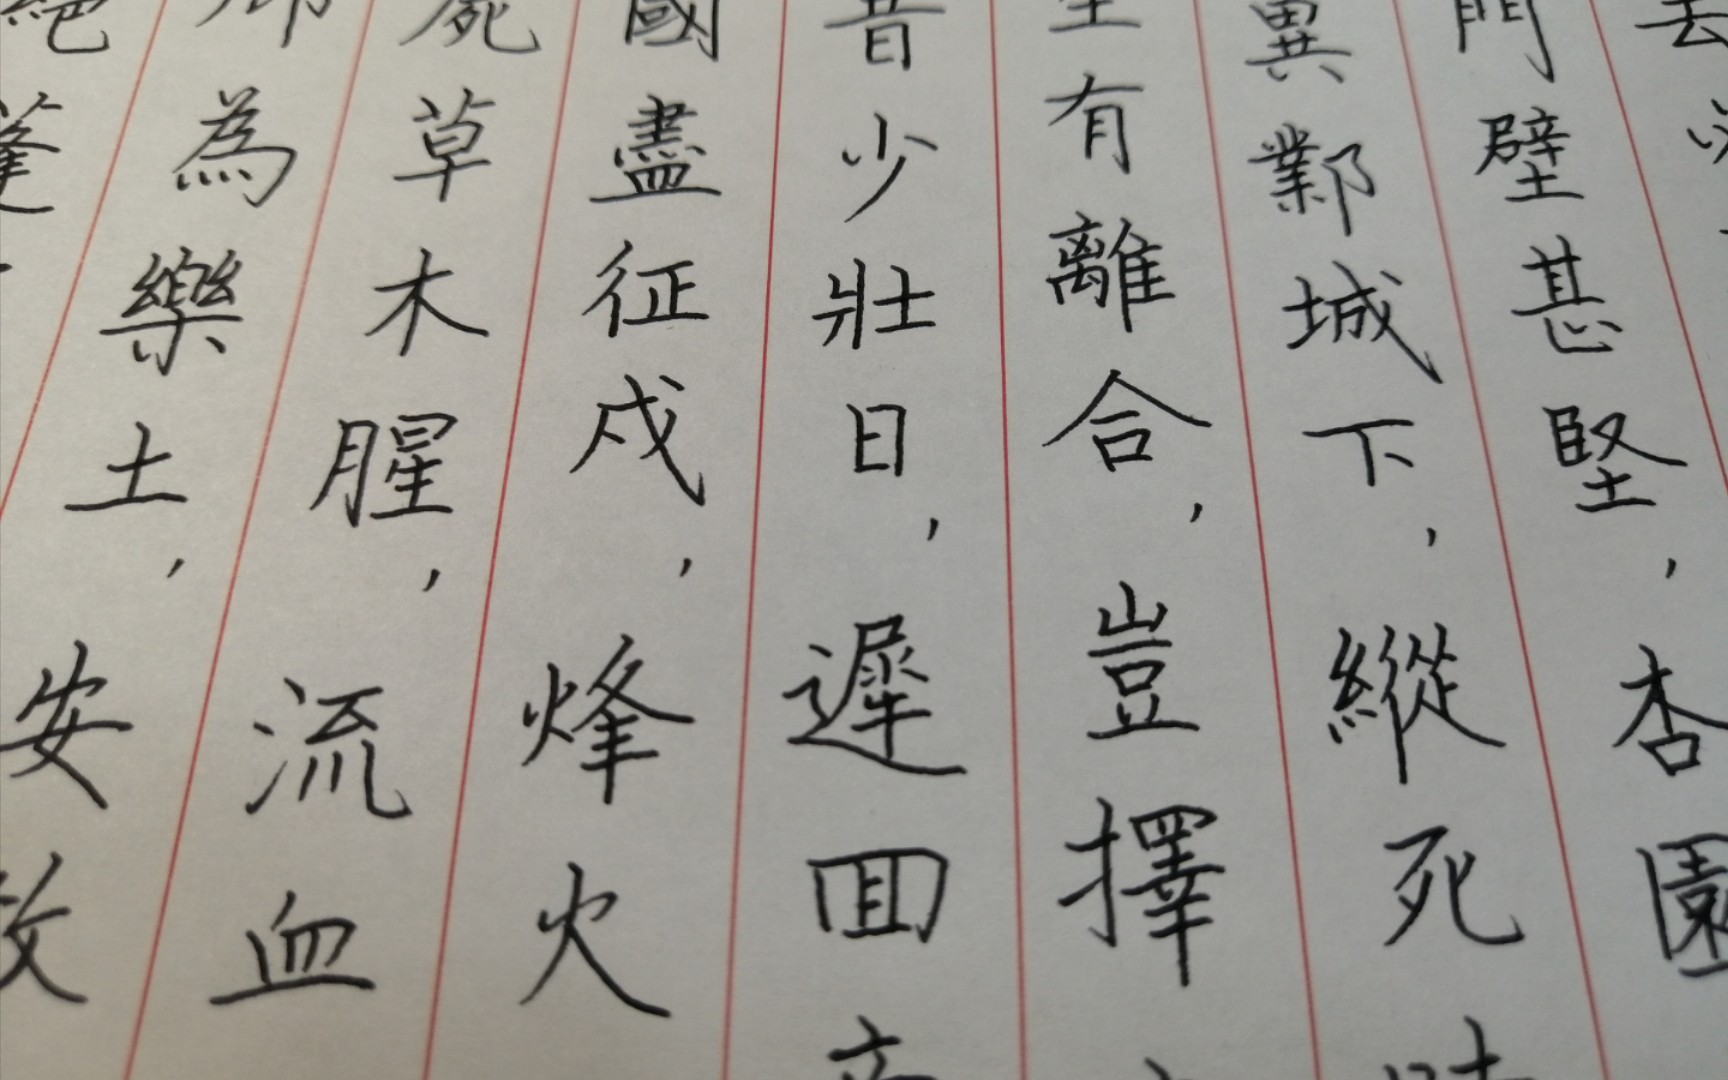 去
門壁甚堅，杏園
異鄴城下，縱死時
有離合，豈擇
昔少壯日，遲囬
國盡征戍，烽火
屍草木腥，流血
鄉為樂土，安敢
絕蓬